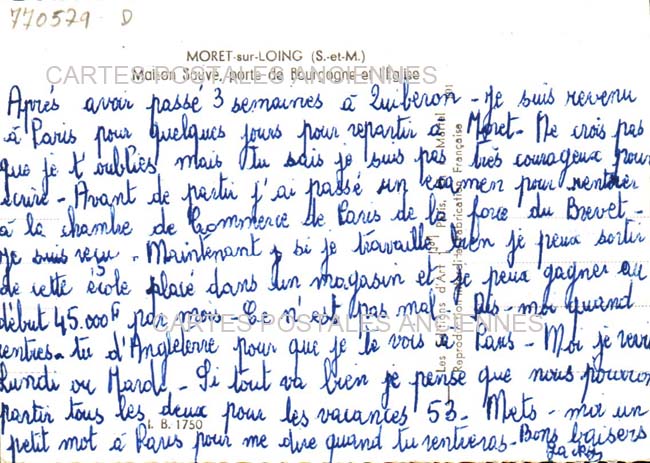 770579 D
MORET-sur-LOING (S.-et-M.)
Maison Sauve, porte de Bourgogne et l'Eglise
CARTES POSTALES ANCIENNES
Après avoir passé 3 semaines à Quiberon - Je suis revenu
à Paris pour quelques jours pour repartir à Moret - Ne crois pas
que je t'oublies mais tu sais je suis pas très courageux pour
écrire - Avant de partir j'ai passé un examen pour rentrer
à la chambre de Commerce de Paris de la force du Brevet -
Je suis reçu - Maintenant, si je travaille bien je peux sortir
de cette école placé dans un magasin et je peux gagner au
début 45.000F par mois - Ce n'est pas mal - Dis-moi quand
CARTES POSTALES ANCIENNES
rentres-tu d'Angleterre pour que je te vois à Paris - Moi je
Lundi ou Mardi - Si tout va bien je pense que nous
partir tous les deux pour les vacances 53 - Mets-moi un
I. B. 1750
petit mot à Paris pour me dire quand tu rentreras - Bons baisers
Les Editions d'Art
Paris
Reproduction Fabrication Française